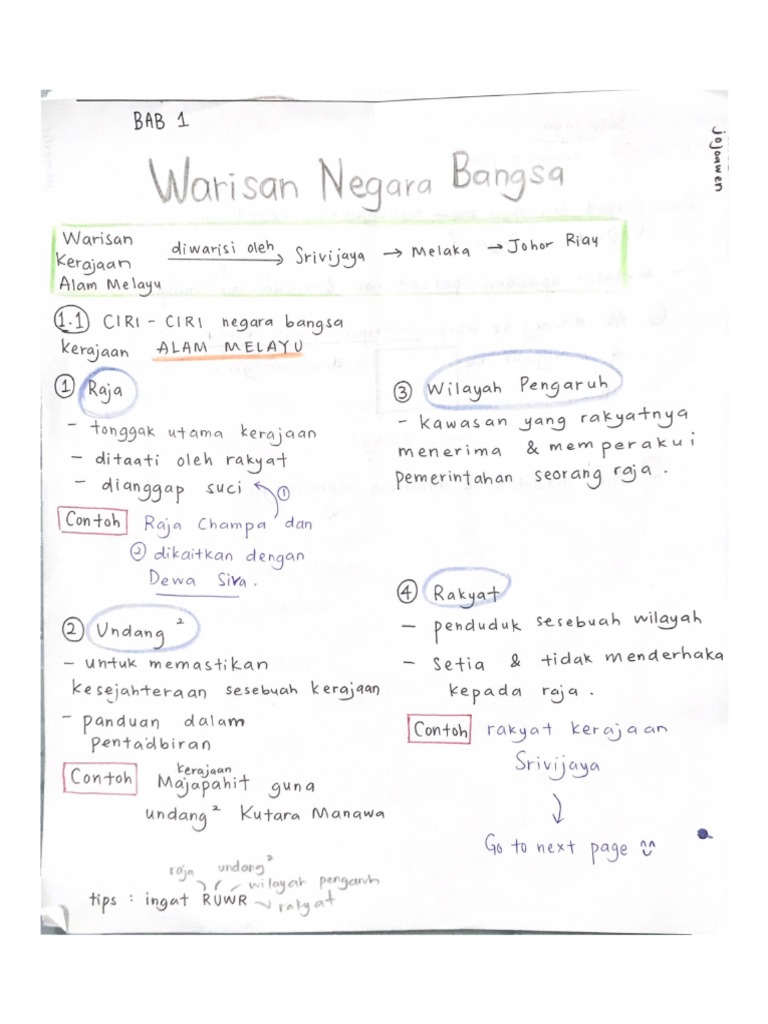 BAB 1
jojoawen
Warisan Negara Bangsa
Warisan
Kerajaan
Alam Melayu
diwarisi oleh → Srivijaya → Melaka → Johor Riau
1.1 CIRI - CIRI negara bangsa
kerajaan ALAM MELAYU
① Raja
- tonggak utama kerajaan
- ditaati oleh rakyat
- dianggap suci ①
Contoh Raja Champa dan
② dikaitkan dengan
Dewa Siva.
② Undang ²
- untuk memastikan
kesejahteraan sesebuah kerajaan
- panduan dalam
pentadbiran
Contoh kerajaan
Majapahit guna
undang² Kutara Manawa
raja undang²
wilayah pengaruh
tips : ingat RUWR rakyat
③ Wilayah Pengaruh
- kawasan yang rakyatnya
menerima & memperakui
pemerintahan seorang raja.
④ Rakyat
- penduduk sesebuah wilayah
- setia & tidak menderhaka
kepada raja.
Contoh rakyat kerajaan
Srivijaya
↓
Go to next page ^^